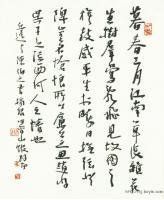 暮春三月江南草長雜花
生樹群鶯亂飛見故國之
旗鼓感平生於疇日撫弦登
陴豈不愴悢所以廉公之思趙將
吳子之泣西河人之情也
丘遲與陳伯之書